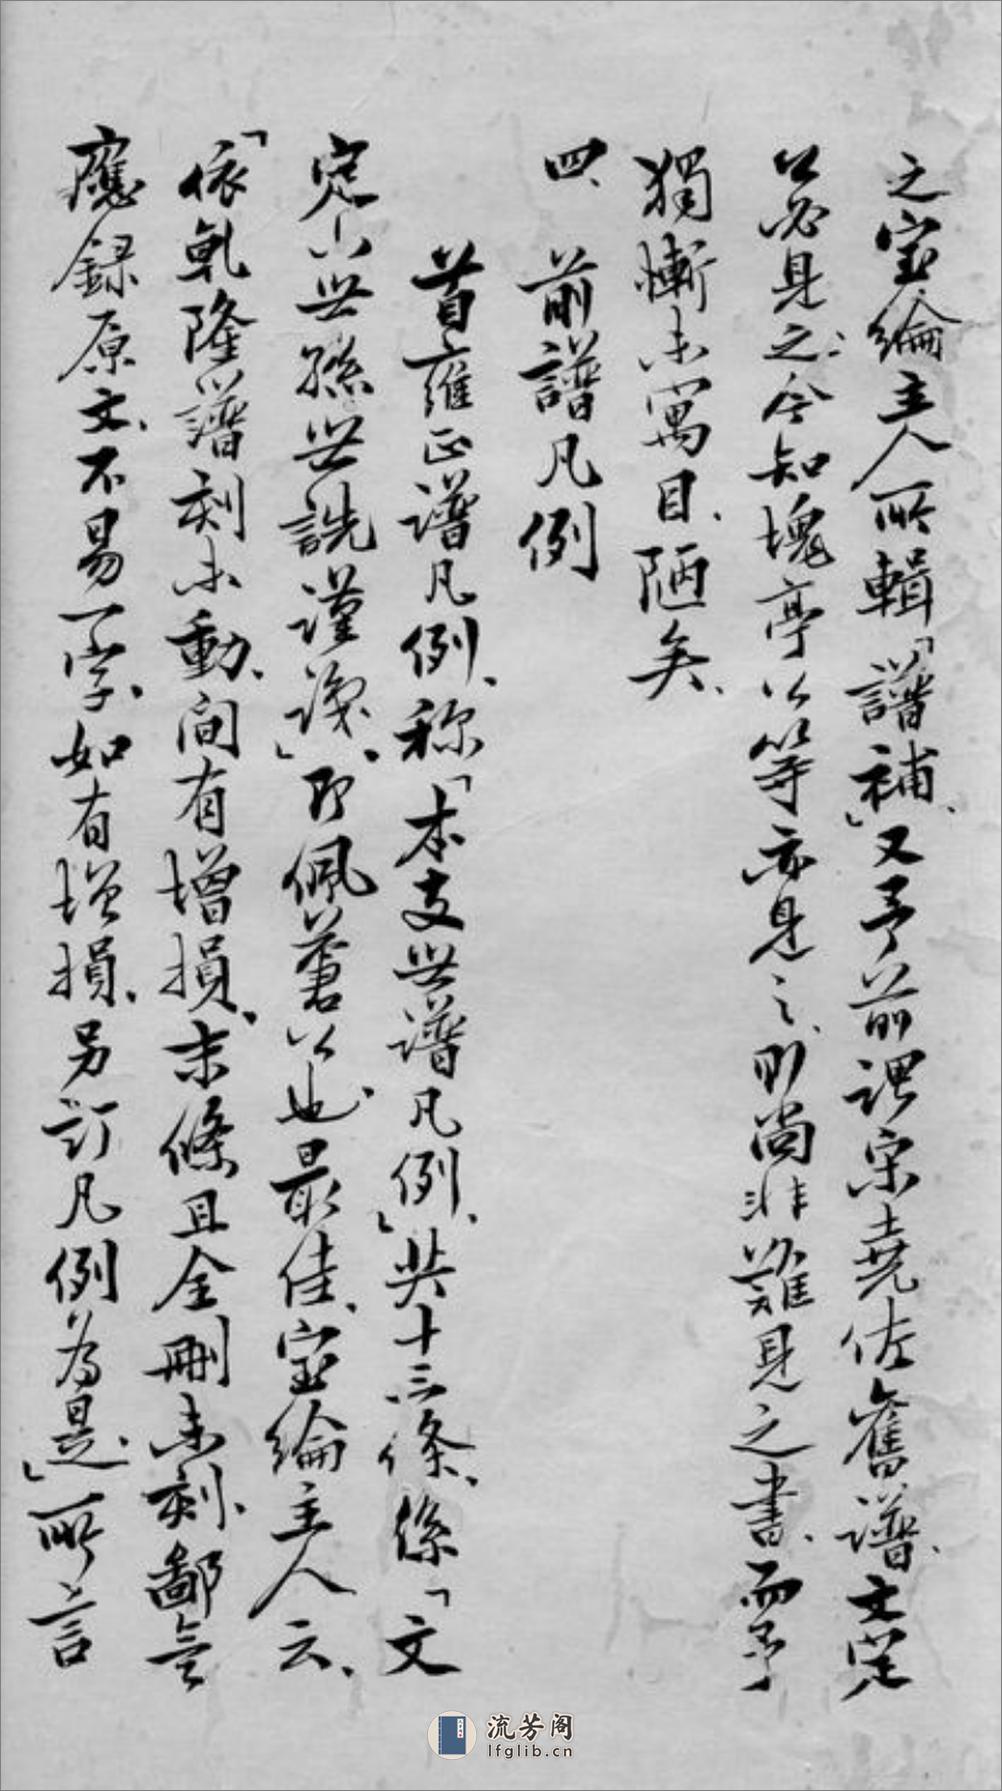 之宝綸主人所輯「譜補」、又予前謂宋堯佐舊譜、文定
公必見之、今知塊亭公等亦見之、則尚非難見之書、而予
獨慚未寓目、陋矣、
四、前譜凡例
首雍正譜凡例、称「本支世譜凡例」、共十三條、係「文
定公世孫世誥謹識」、即佩蒼公也、最佳、宝綸主人云、
「依乾隆譜刻未動、间有增損、末條且全刪未刻、鄙意
應録原文、不易一字、如有增損、另訂凡例為是」、所言
流芳阁
lfglib.cn